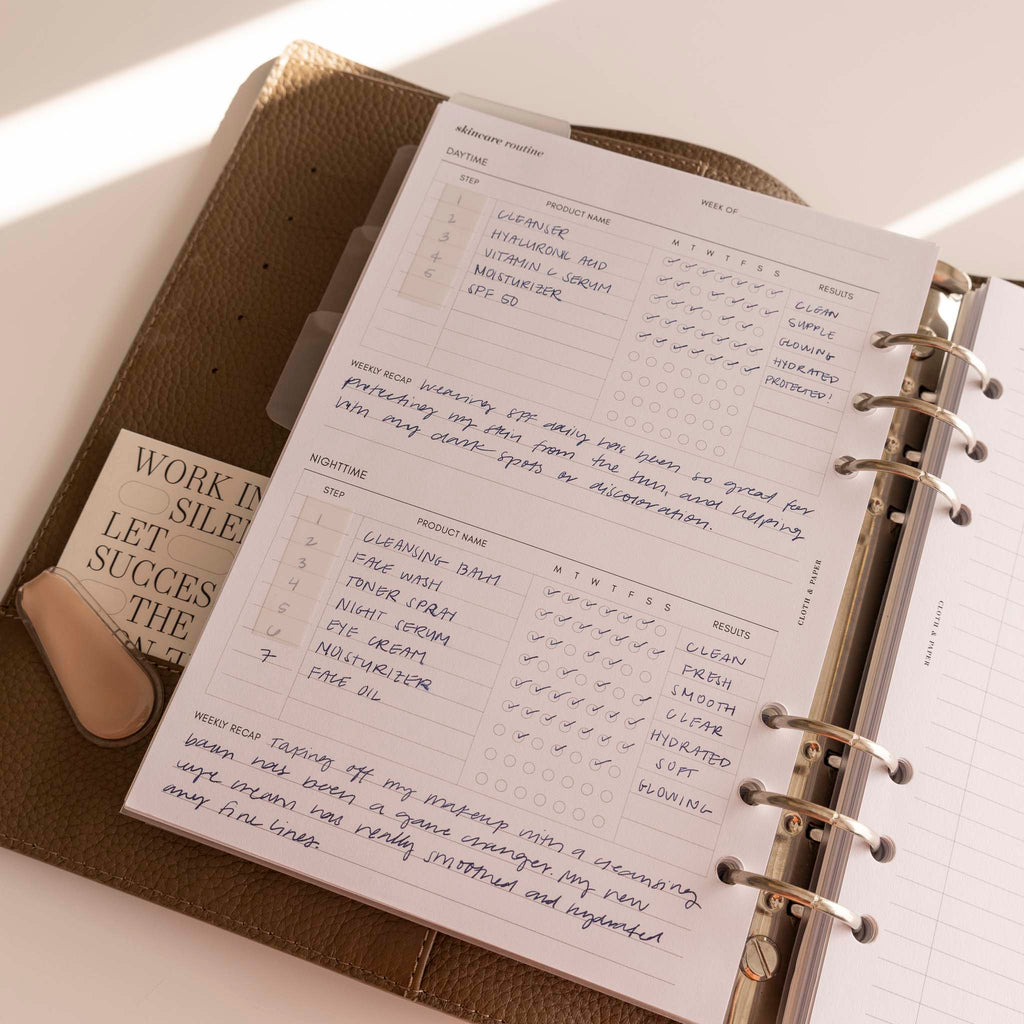 skincare routine
DAYTIME
WEEK OF
STEP PRODUCT NAME M T W T F S S RESULTS
1 CLEANSER CLEAN
2 HYALURONIC ACID SUPPLE
3 VITAMIN C SERUM GLOWING
4 MOISTURIZER HYDRATED
5 SPF 50 PROTECTED!
WEEKLY RECAP Wearing SPF daily has been so great for
protecting my skin from the sun, and helping
with any dark spots or discoloration.
NIGHTTIME
STEP PRODUCT NAME M T W T F S S RESULTS
1 CLEANSING BALM CLEAN
2 FACE WASH FRESH
3 TONER SPRAY SMOOTH
4 NIGHT SERUM CLEAR
5 EYE CREAM HYDRATED
6 MOISTURIZER SOFT
7 FACE OIL GLOWING
WEEKLY RECAP Taking off my makeup with a cleansing
balm has been a game changer. My new
eye cream has really smoothed and hydrated
any fine lines.
CLOTH & PAPER
WORK IN
SILEN
LET
SUCCES
THE
CLOTH & PAPER